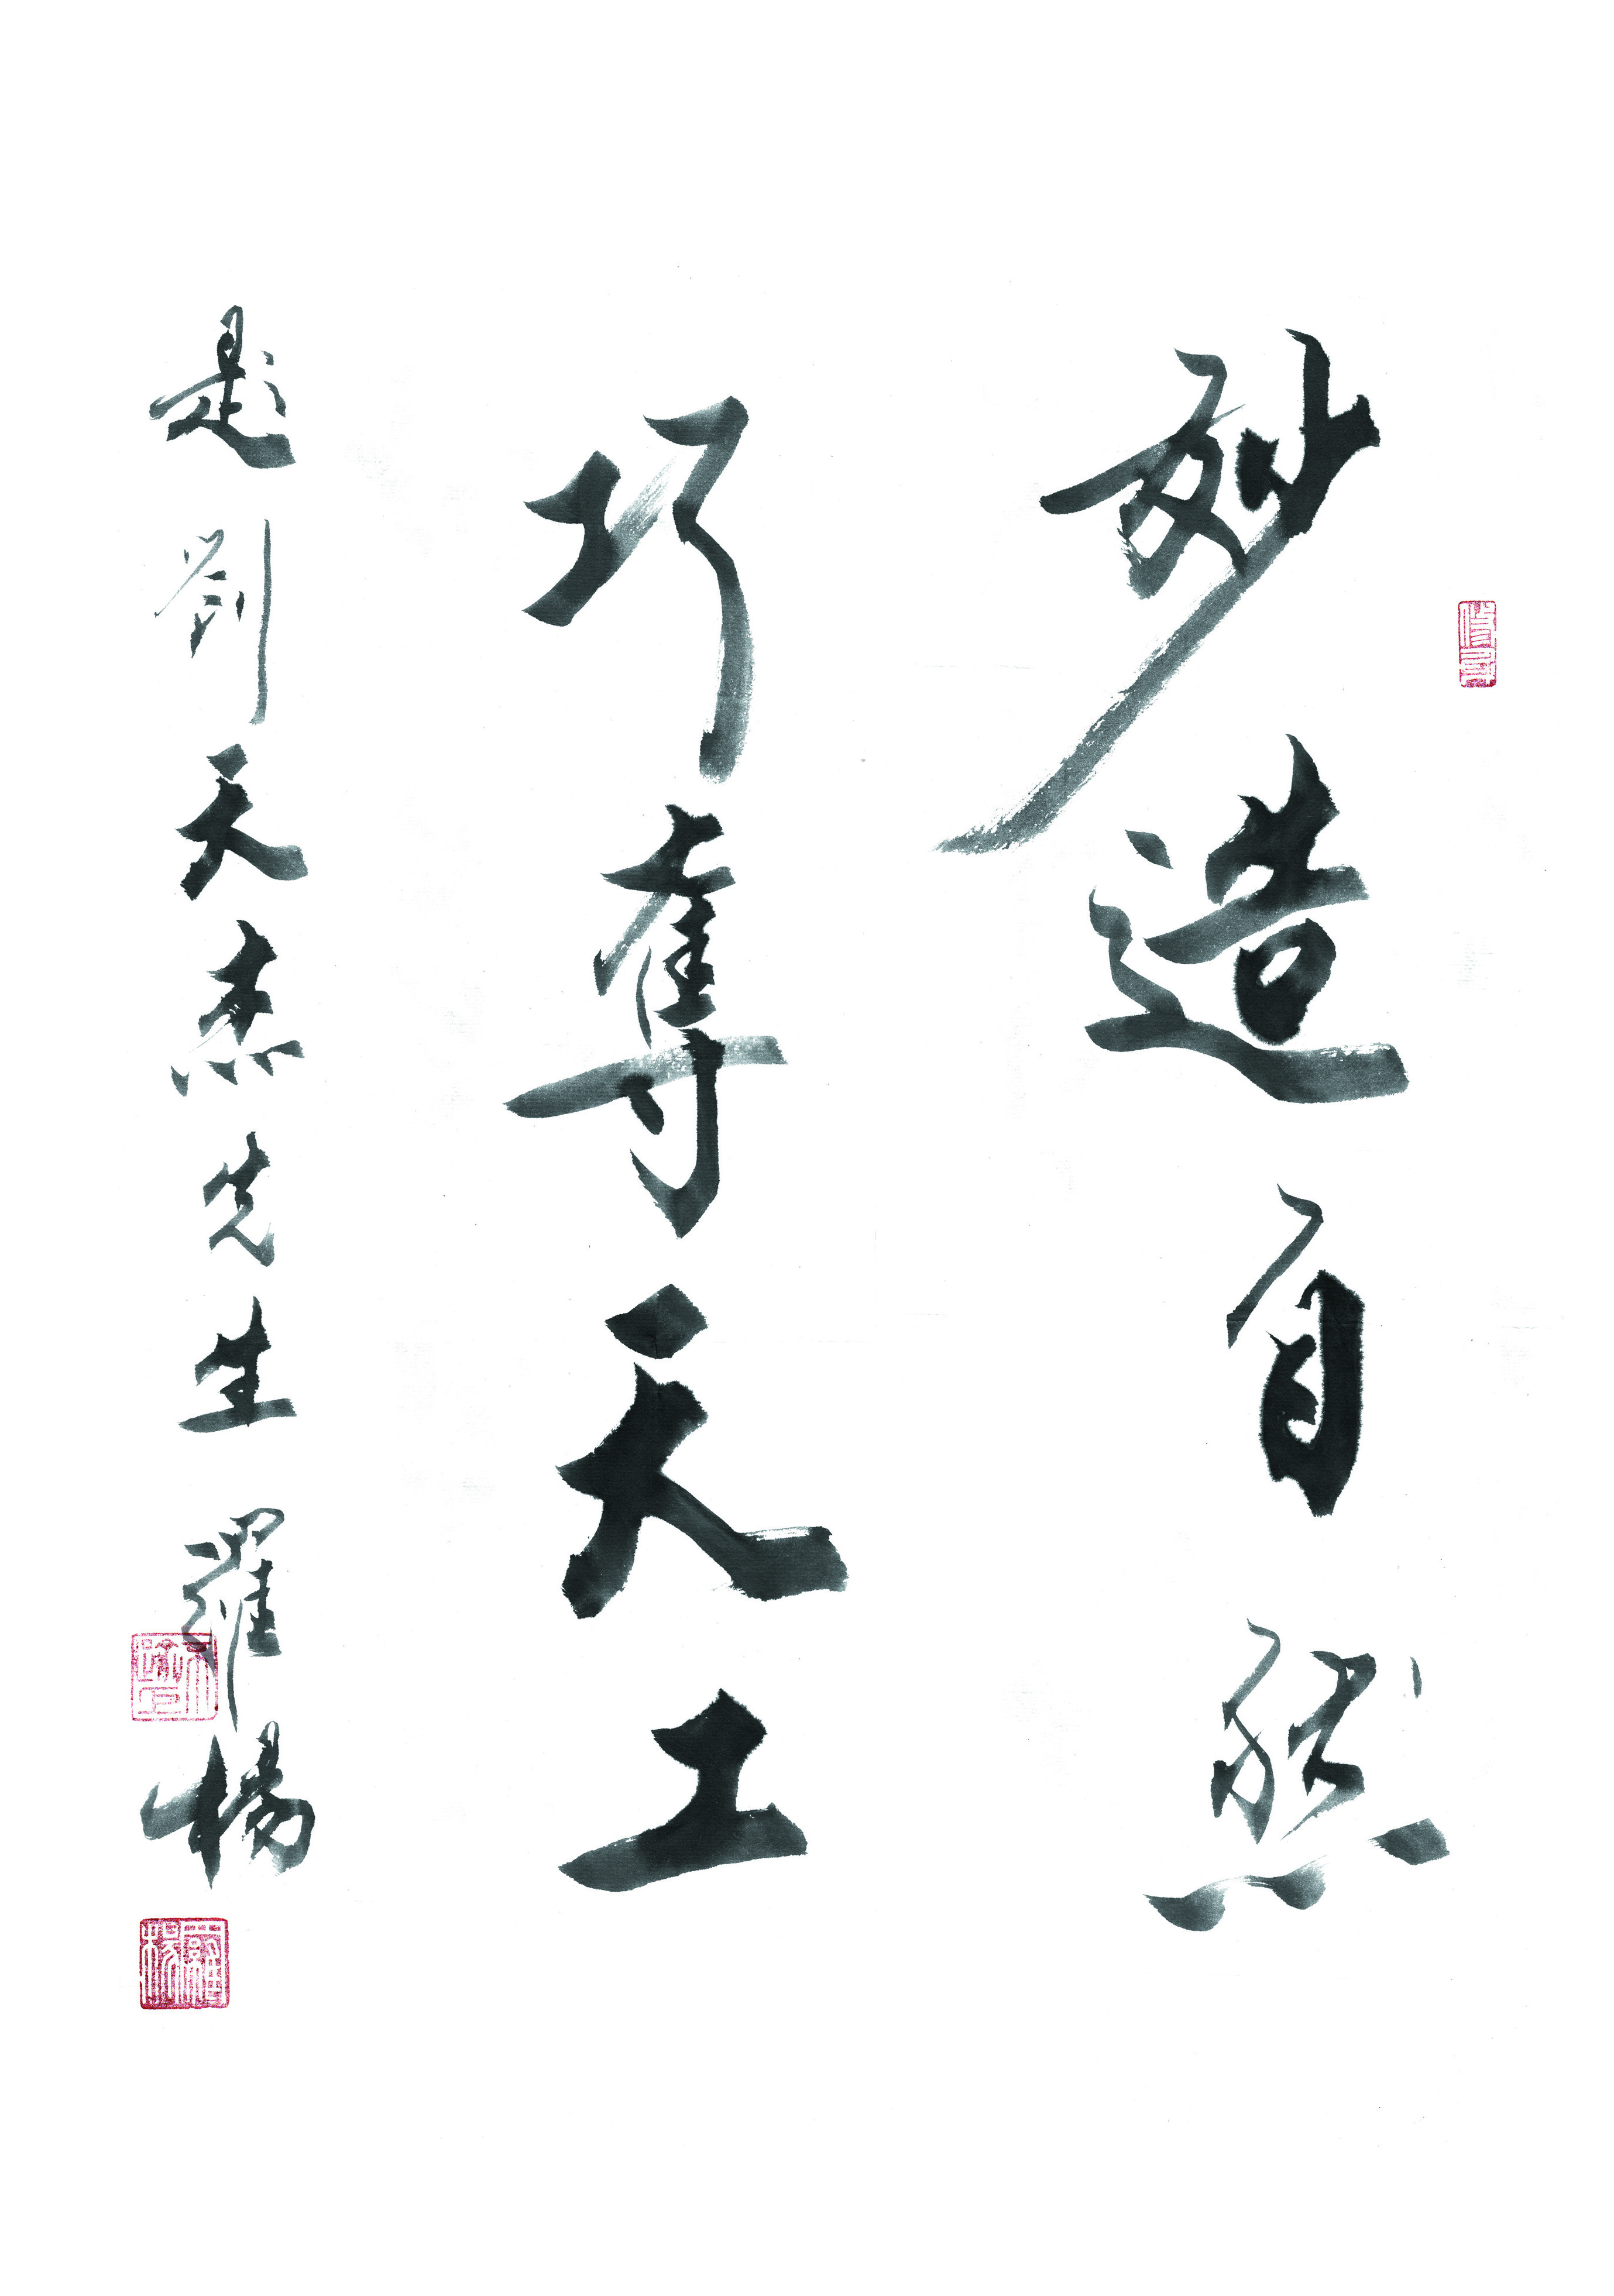 妙造自然
巧奪天工
題劉天杰先生 羅楊
羅楊